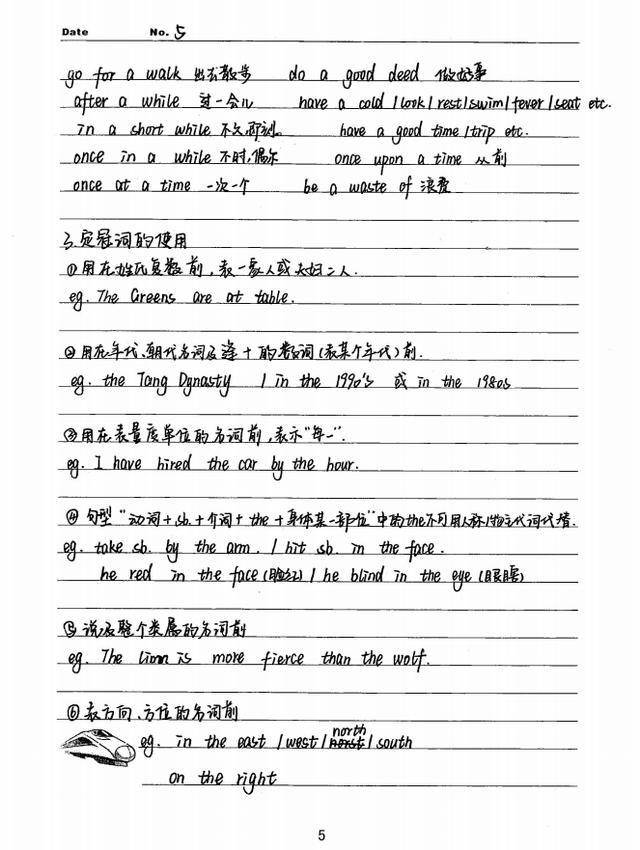 Date No. 5
go for a walk 出去散步 do a good deed 做好事
after a while 过一会儿 have a cold / look / rest / swim / fever / seat etc.
in a short while 不久,即刻。 have a good time / trip etc.
once in a while 不时,偶尔 once upon a time 从前
once at a time 一次一个 be a waste of 浪费
3.定冠词的使用
①用在姓氏复数前,表一家人或夫妇二人.
eg. The Greens are at table.
②用在年代、朝代名词及逢十的数词(表某个年代)前.
eg. the Tang Dynasty / in the 1990's 或 in the 1980s
③用在表量度单位的名词前,表示"每一".
eg. I have hired the car by the hour.
④句型"动词+sb.+介词+the+身体某一部位"中的the不可用人称/物主代词代替.
eg. take sb. by the arm. / hit sb. in the face.
he red in the face (脸红) / he blind in the eye (眼瞎)
⑤说及整个类属的名词前
eg. The lion is more fierce than the wolf.
⑥表方向、方位的名词前
eg. in the east / west / north / south
on the right
5